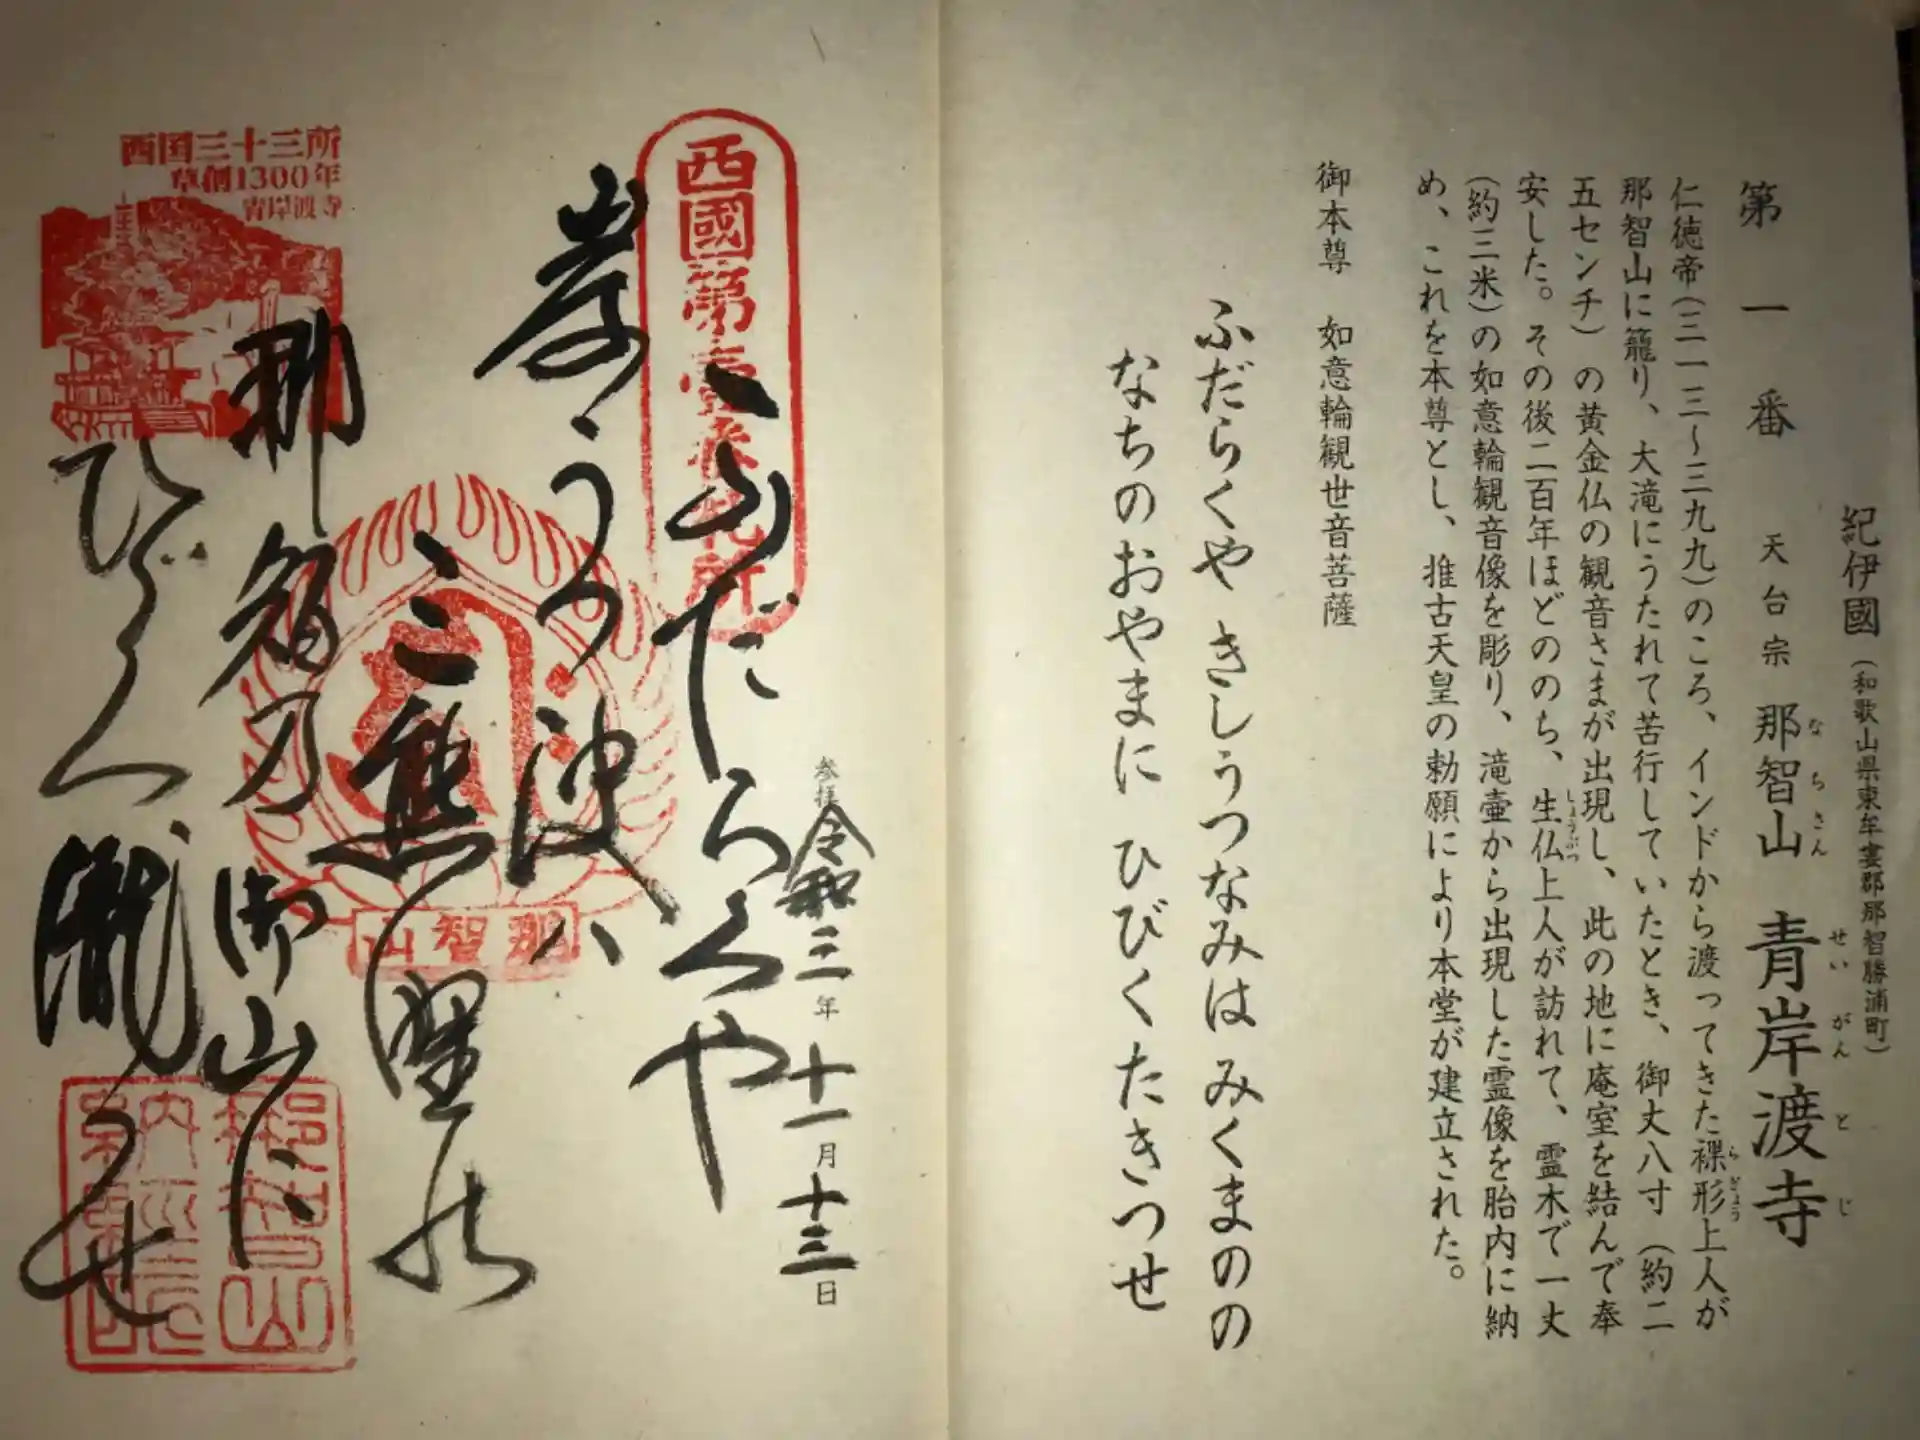 紀伊國（和歌山県東牟婁郡那智勝浦町）
第一番 天台宗 那智山 青岸渡寺
なちさん せいがんとじ
仁徳帝（三一三～三九九）のころ、インドから渡ってきた裸形上人が
らぎょう
那智山に籠り、大滝にうたれて苦行していたとき、御丈八寸（約二
五センチ）の黄金仏の観音さまが出現し、此の地に庵室を結んで奉
安した。その後二百年ほどのち、生仏上人が訪れて、霊木で一丈
しょうぶつ
（約三米）の如意輪観音像を彫り、滝壷から出現した霊像を胎内に納
め、これを本尊とし、推古天皇の勅願により本堂が建立された。
御本尊 如意輪観世音菩薩
ふだらくや きしうつなみは みくまのの
なちのおやまに ひびくたきつせ
参拝 令和三年十一月十三日
西國第壹番札所
ふだらくや
岸うつ波ハ
三熊野の
那智乃御山に
ひゞく瀧つせ
西国三十三所
草創1300年
青岸渡寺
那智山
那智山
納経